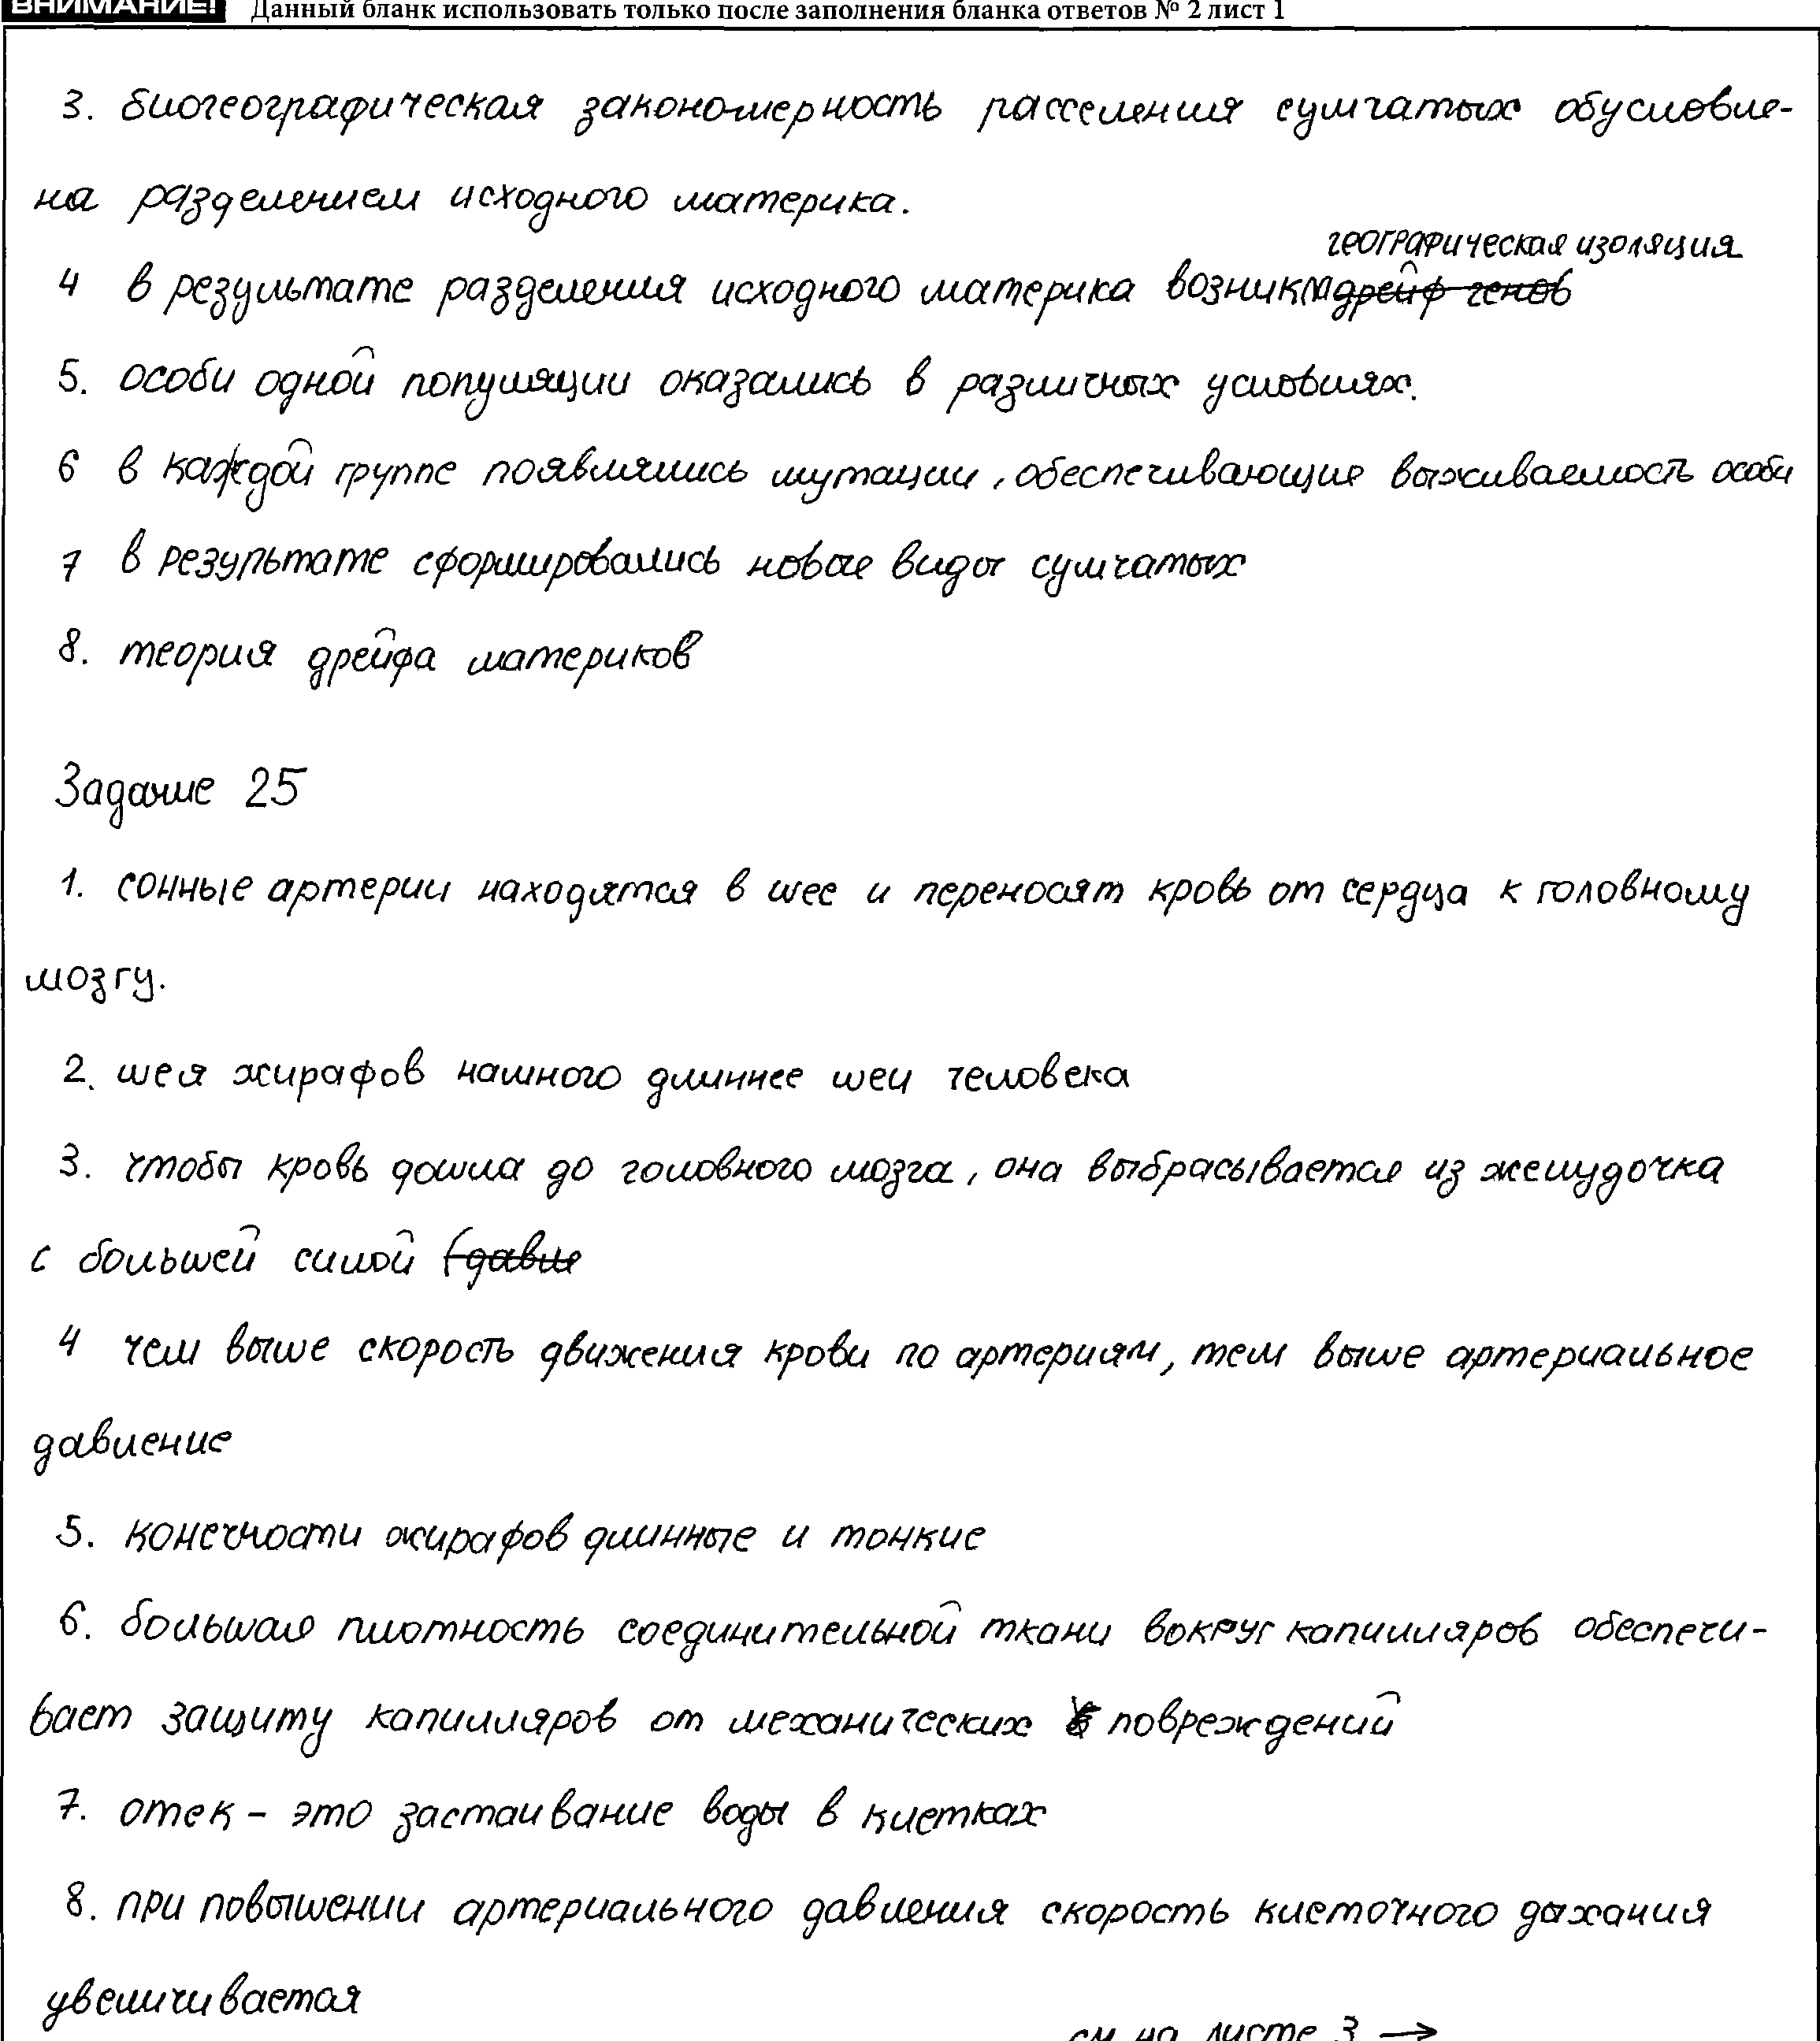 ВНИМАНИЕ! Данный бланк использовать только после заполнения бланка ответов № 2 лист 1
3. биогеографическая закономерность расселения сумчатых обусловле-
на разделением исходного материка.
географическая изоляция
4 в результате разделения исходного материка возникла дрейф генов
5. особи одной популяции оказались в различных условиях.
6 в каждой группе появлялись мутации, обеспечивающие выживаемость особи
7 в результате сформировались новые виды сумчатых
8. теория дрейфа материков
Задание 25
1. сонные артерии находятся в шее и переносят кровь от сердца к головному
мозгу.
2. шея жирафов намного длиннее шеи человека
3. чтобы кровь дошла до головного мозга, она выбрасывается из желудочка
с большей силой (давле
4 чем выше скорость движения крови по артериям, тем выше артериальное
давление
5. конечности жирафов длинные и тонкие
6. большая плотность соединительной ткани вокруг капилляров обеспечи-
вает защиту капилляров от механических повреждений
7. отек - это застаивание воды в клетках
8. при повышении артериального давления скорость клеточного дыхания
увеличивается
см на листе 3 →